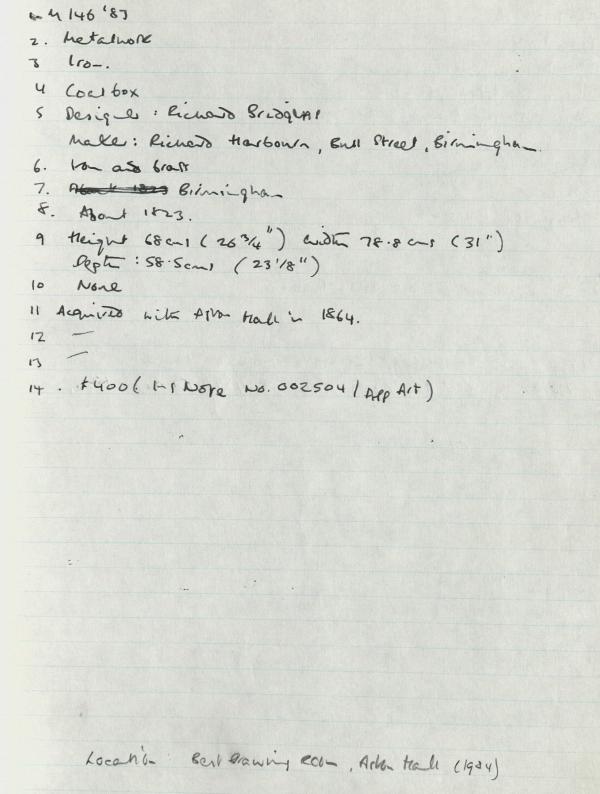 M 146 '83
2. Metalwork
3 Iron.
4 Coal box
5 Designer : Richard Bridgens
Maker : Richard Harbourn, Bull Street, Birmingham.
6. Iron and brass
7. About 1823 Birmingham
8. About 1823.
9 Height 68cms (26 3/4") width 78.8 cms (31")
Depth : 58.5cms (23 1/8")
10 None
11 Acquired with Aston Hall in 1864.
12 —
13 —
14 . £400 (Ins Note No. 002504 / App Art)
Location : Best Drawing Room, Aston Hall (1984)